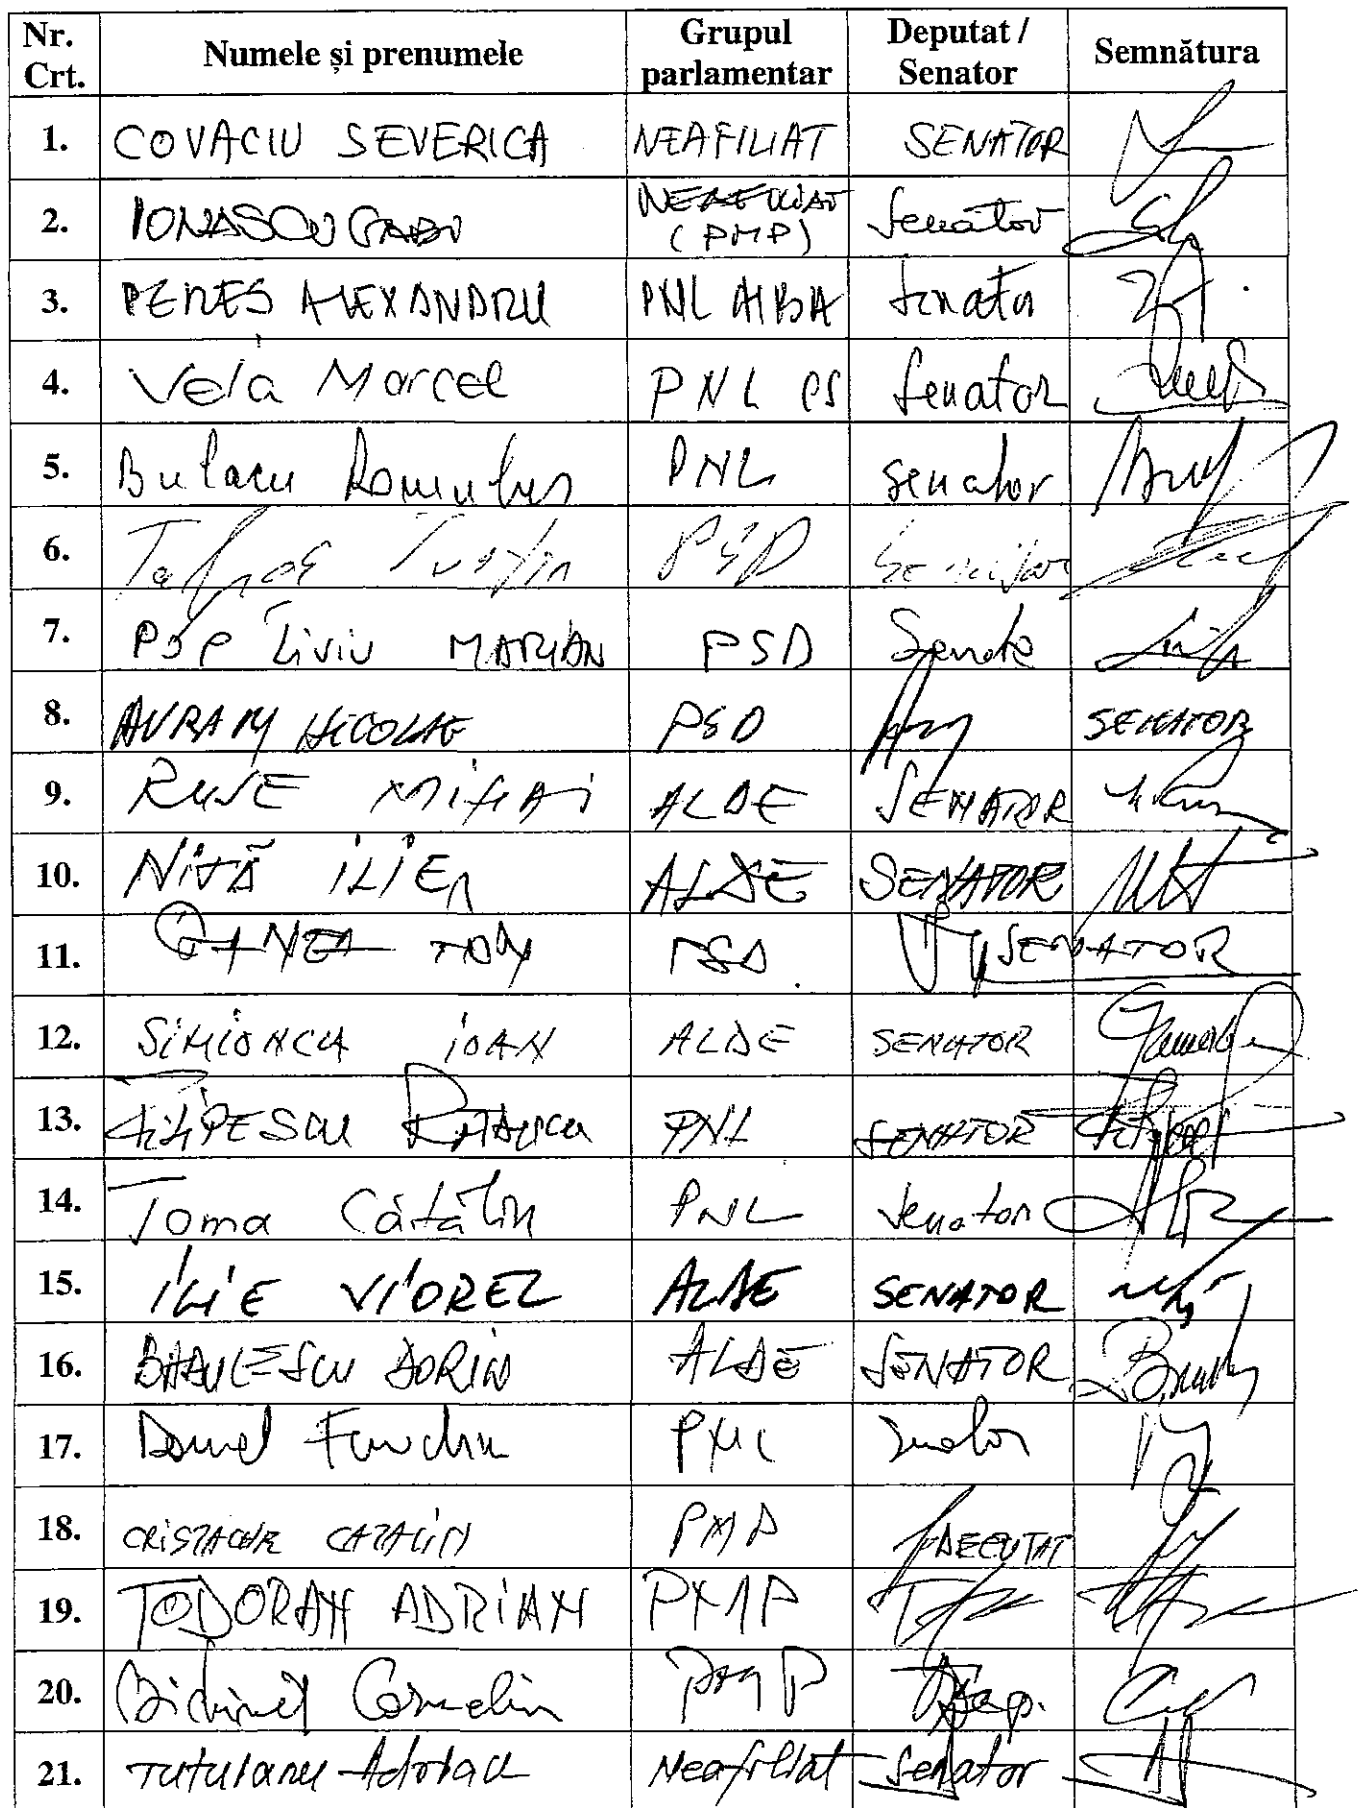 Nr. Crt. Numele și prenumele Grupul parlamentar Deputat / Senator Semnătura
1. COVACIU SEVERICA NEAFILIAT SENATOR
2. IONASCU GABI NEAFILIAT (PMP) Senator
3. PERES ALEXANDRU PNL ALBA Senator
4. Vela Marcel PNL CS Senator
5. Bulacu Romulus PNL senator
6. PSD Senator
7. POP Liviu MARIAN PSD
8. AVRAM NICOLAE PSD SENATOR
9. RUSE MIHAI ALDE SENATOR
10. NIȚĂ ILIE ALDE SENATOR
11. GANEA ION PSD SENATOR
12. SIMIONCA IOAN ALDE SENATOR
13. FILIPESCU RADUCU PNL SENATOR
14. Toma Cătălin PNL Senator
15. ILIE VIOREL ALDE SENATOR
16. BADULESCU DORIN ALDE SENATOR
17. Daniel Senator
18. CRISTACHE CATALIN PMP DEPUTAT
19. TODORAN ADRIAN PMP
20. Bichineț Corneliu PMP Dep.
21. Tutuianu Adrian Neafiliat Senator